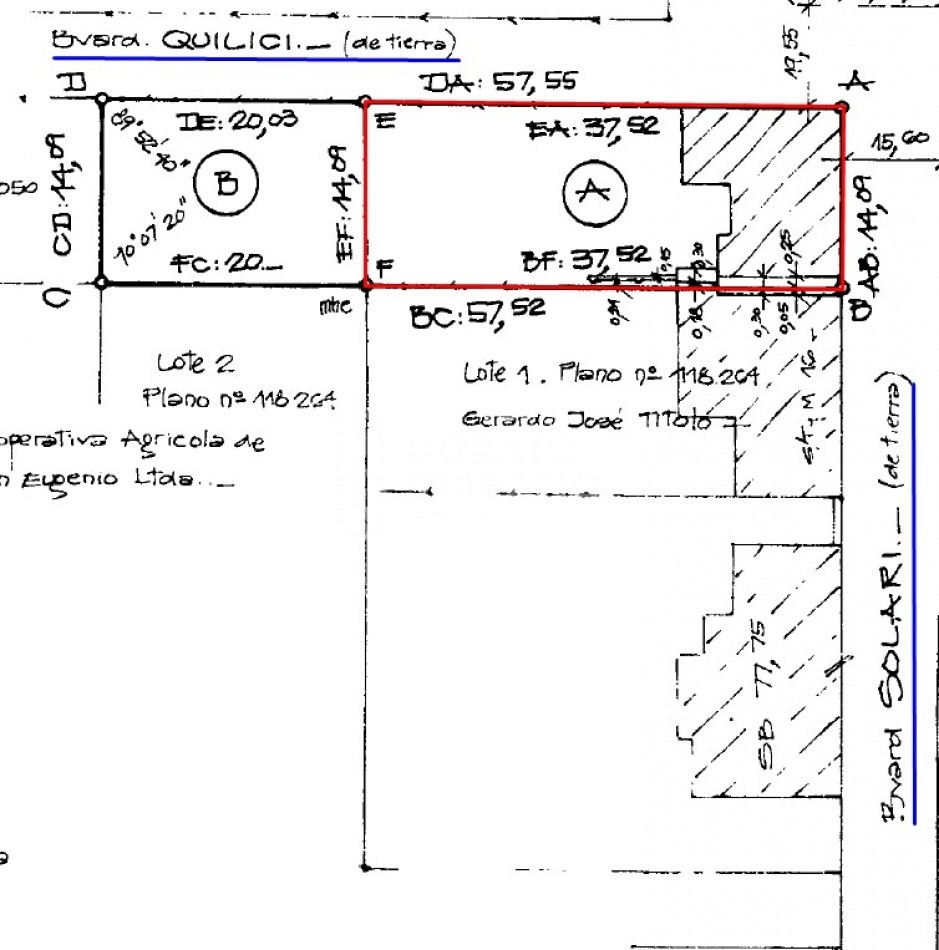 Bvard. QUILICI.— (de tierra)
19,55
D
DA: 57,55
A
DE: 20,03
E
EA: 37,52
15,60
89° 52' 40"
CD: 14,09
B
EF: 14,09
A
AB: 14,09
050
FC: 20.—
F
BF: 37,52
0,15
0,30
0,25
C
mhc
BC: 57,52
0,18
0,30
0,05
B
Lote 2
Plano nº 118.264
Lote 1. Plano nº 118.264
Gerardo José TiToto
operativa Agricola de
n Eugenio Ltda..—
Bvard SOLARI.— (de tierra)
SB 77,75